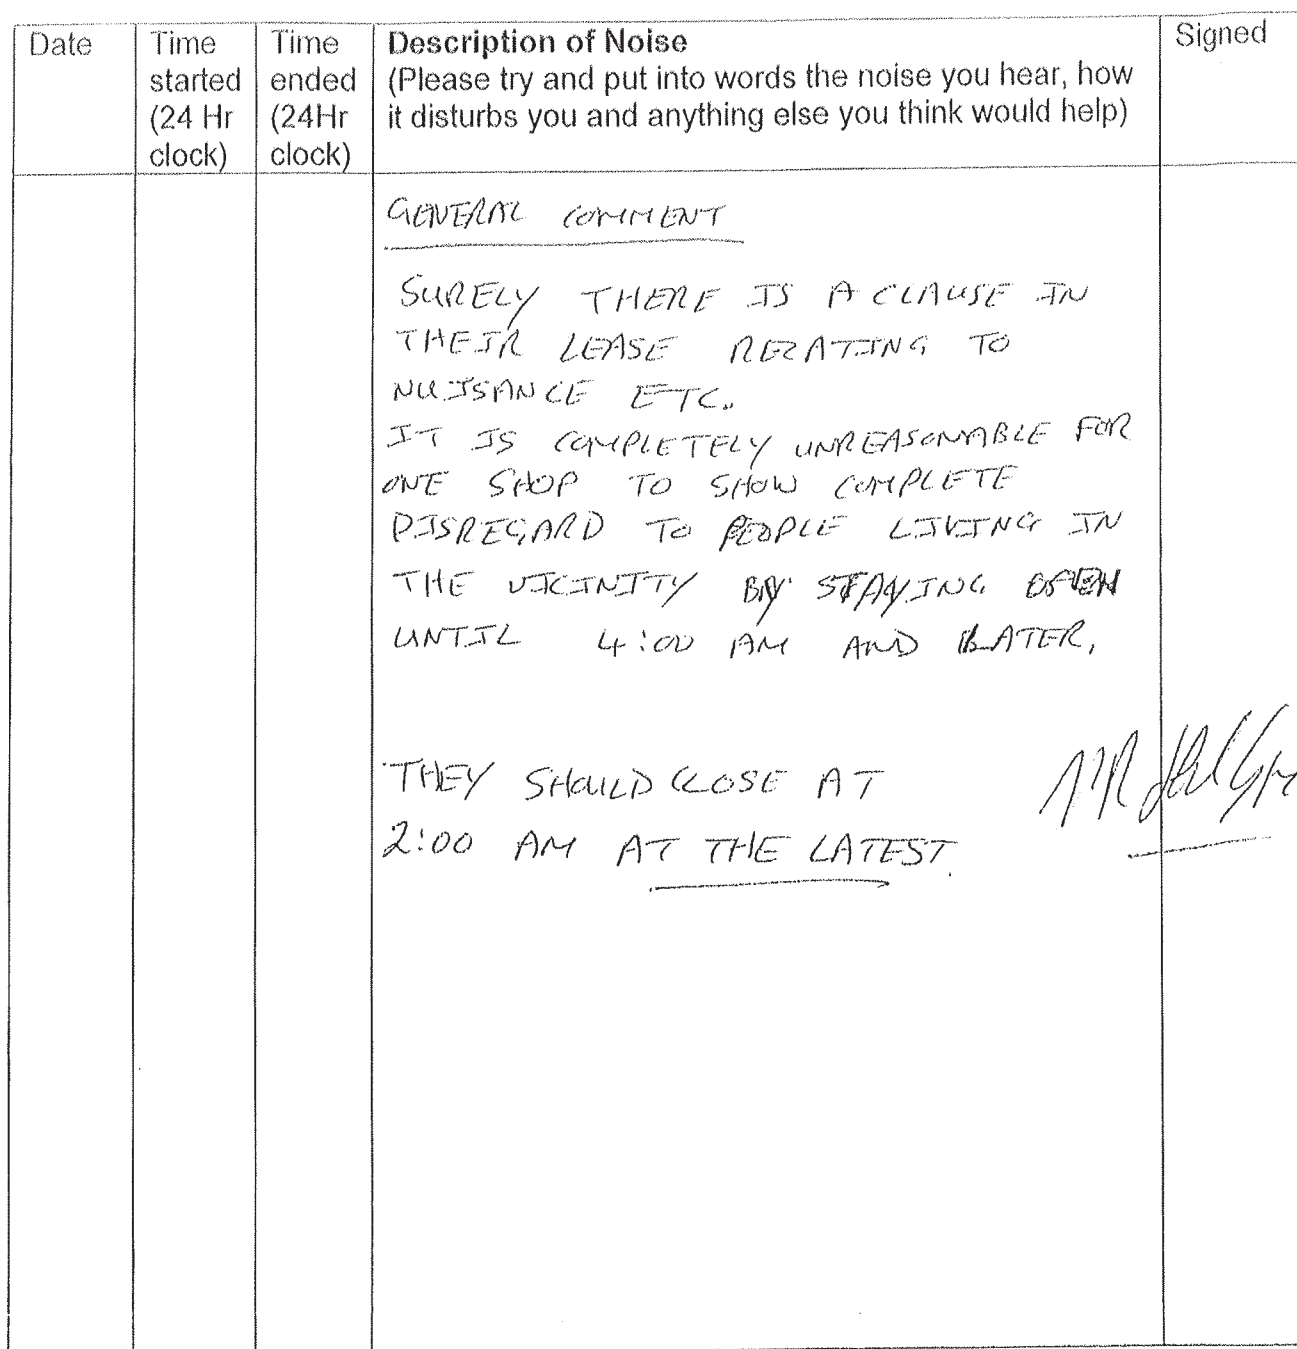 Date
Time started (24 Hr clock)
Time ended (24Hr clock)
Description of Noise
(Please try and put into words the noise you hear, how
it disturbs you and anything else you think would help)
Signed
GENERAL COMMENT
SURELY THERE IS A CLAUSE IN
THEIR LEASE RELATING TO
NUISANCE ETC.
IT IS COMPLETELY UNREASONABLE FOR
ONE SHOP TO SHOW COMPLETE
DISREGARD TO PEOPLE LIVING IN
THE VICINITY BY STAYING OPEN
UNTIL 4:00 AM AND LATER.
THEY SHOULD CLOSE AT
2:00 AM AT THE LATEST.